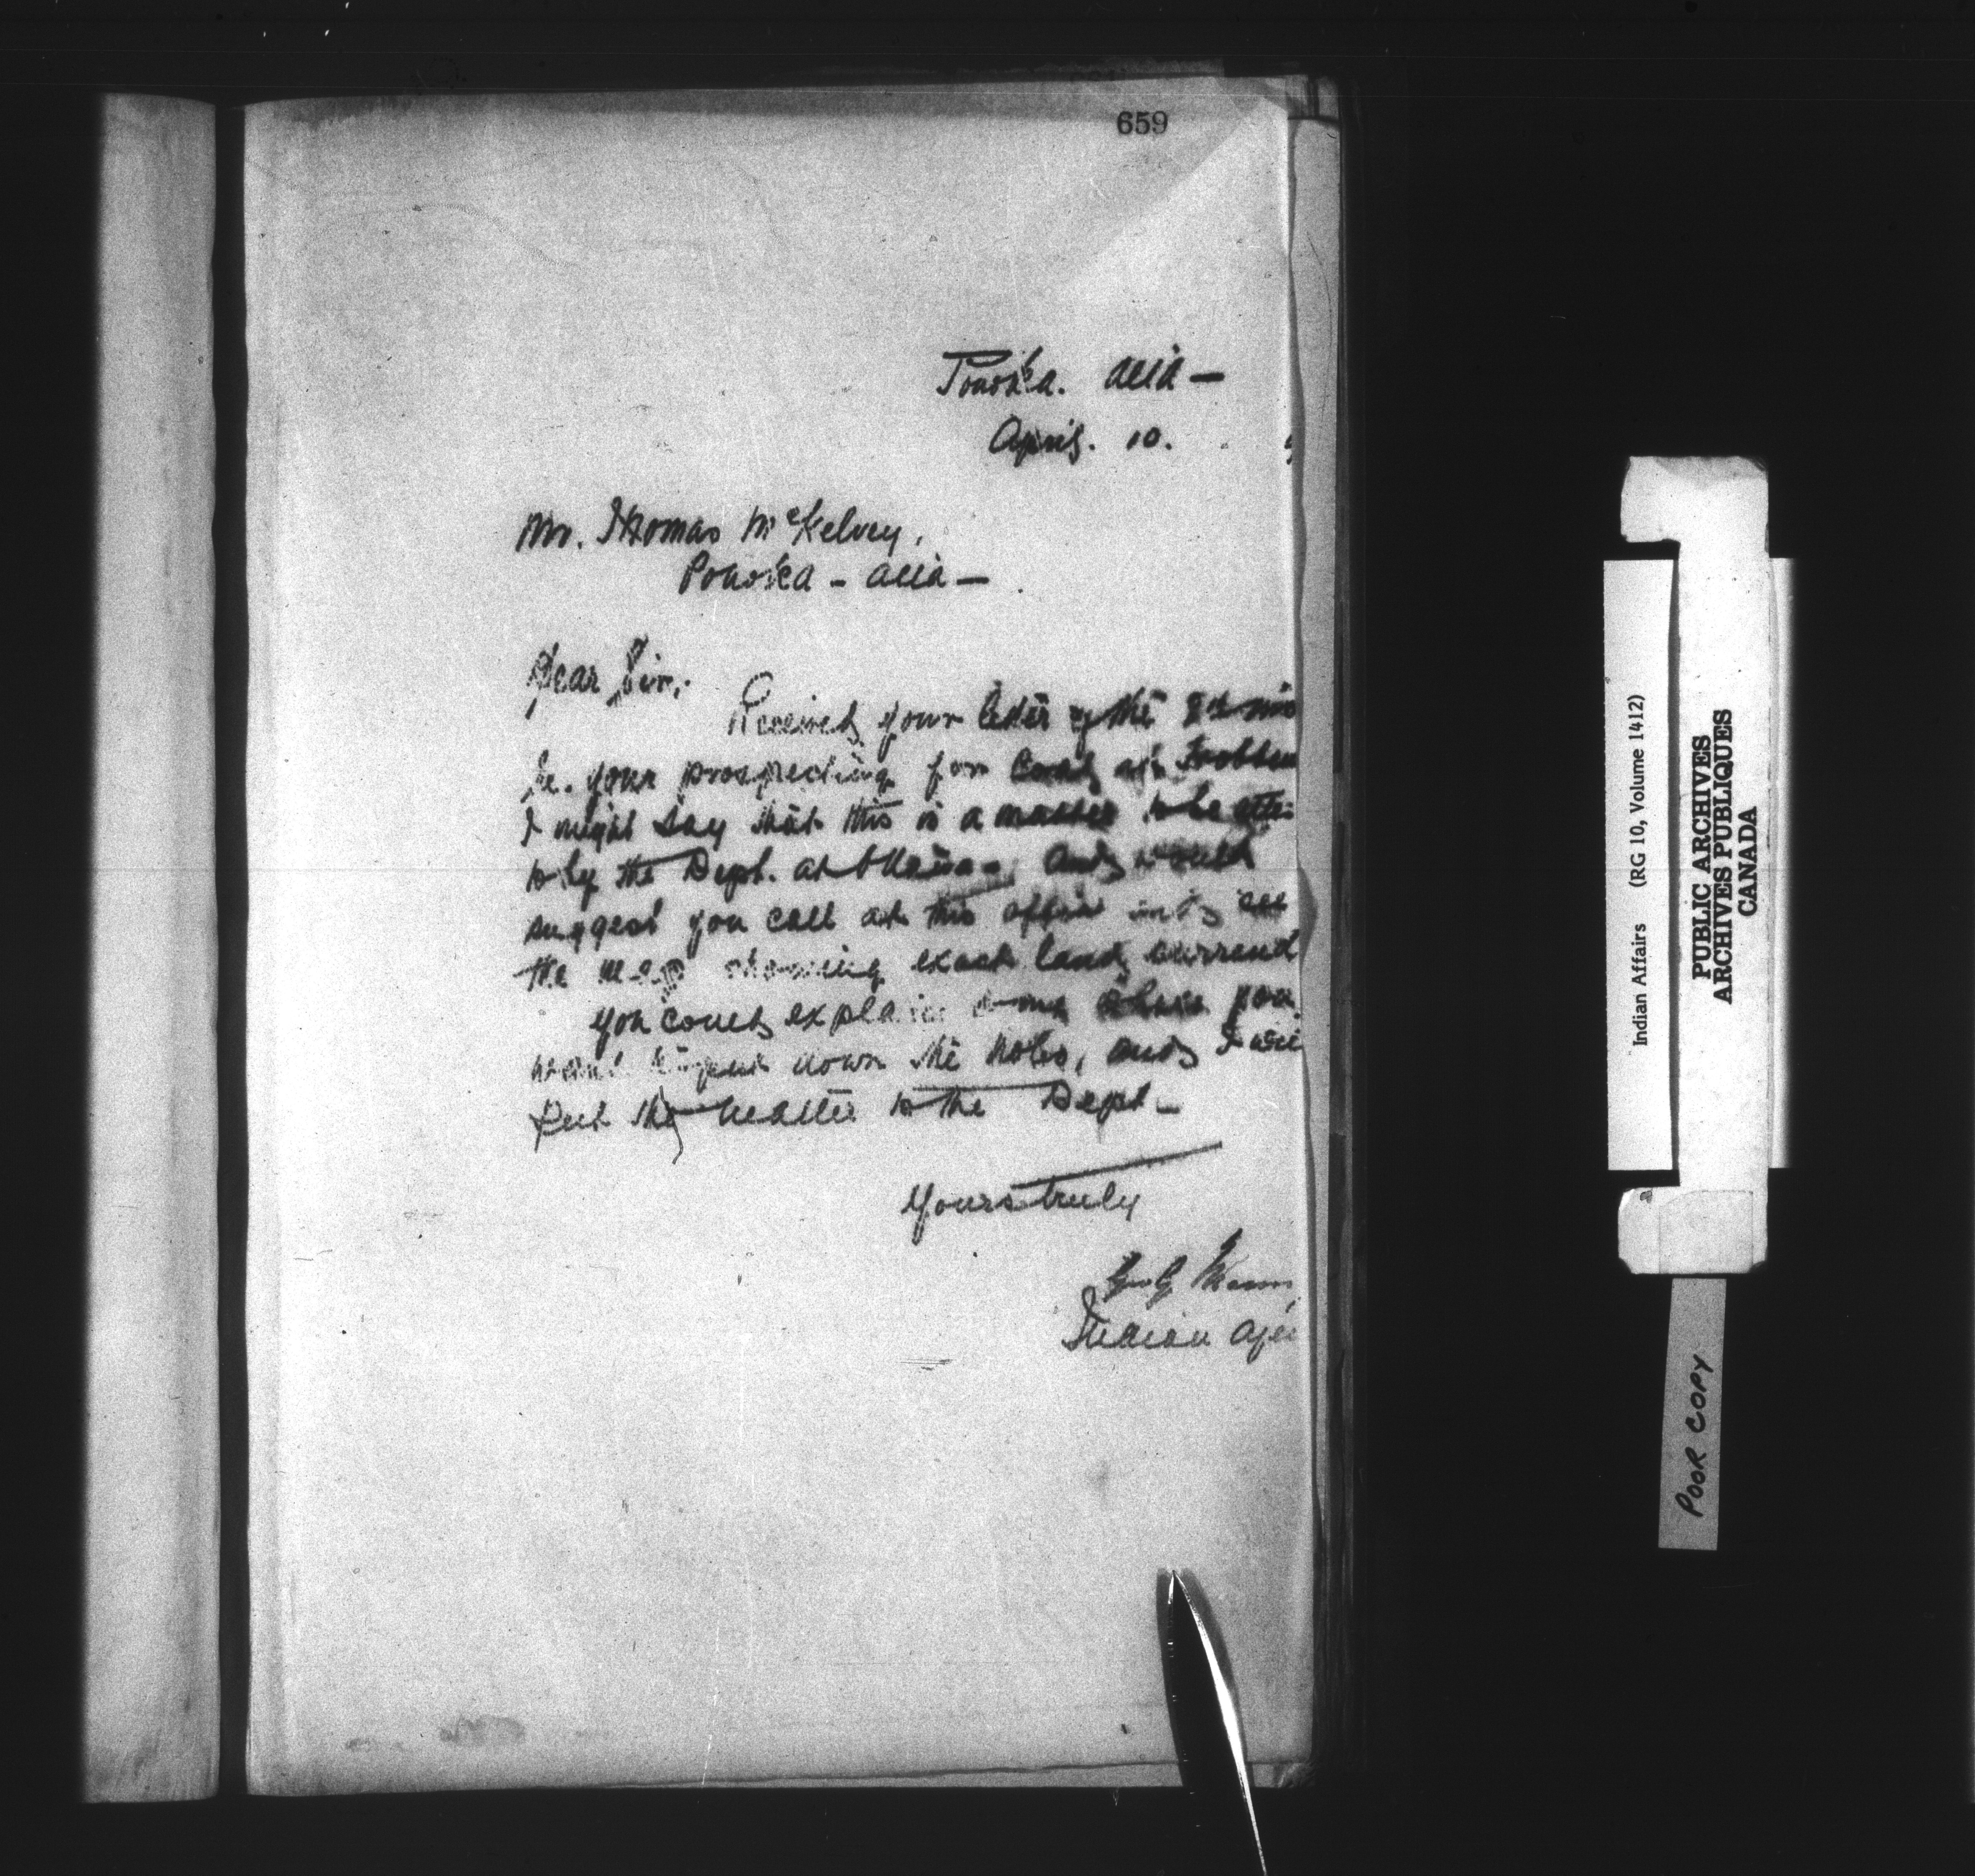 659
Ponoka. Alta —
April. 10.
Mr. Thomas McKelvey,
Ponoka - Alta —
Dear Sir,
Received your letter of the 8th
Re. your prospecting for Coal at
I might say that this is a matter to be
to by the Dept. at Ottawa - and would
suggest you call at this office and see
the map showing exact land
you could explain
want to put down the holes, and I
put the matter to the Dept -
Yours truly
Geo G Mann
Indian
Indian Affairs (RG 10, Volume 1412)
PUBLIC ARCHIVES
ARCHIVES PUBLIQUES
CANADA
POOR COPY